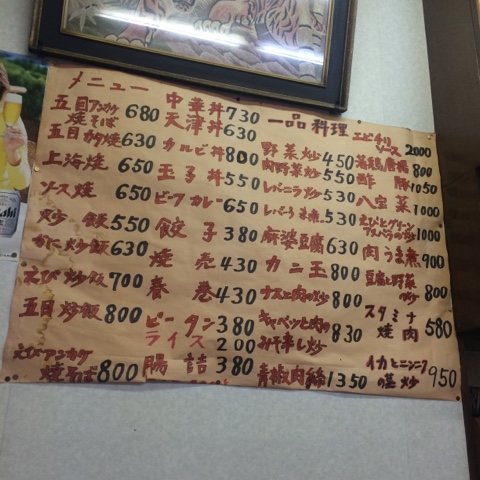 メニュー
五目アンカケ焼そば 680
五目カタ焼 630
上海焼 650
ソース焼 650
炒飯 550
かに炒飯 630
えび炒飯 700
五目炒飯 800
えびアンカケ焼そば 800
中華丼 730
天津丼 630
カルビ丼 800
玉子丼 550
ビーフカレー 650
餃子 380
焼売 430
春巻 430
ピータン 380
ライス 200
腸詰 380
一品料理
野菜炒 450
肉野菜炒 550
レバニラ炒 530
麻婆豆腐 630
カニ玉 800
ナスと肉の炒 800
キャベツと肉のみそ辛し炒 830
青椒肉絲 1350
エビチリソース 2000
若鶏唐揚 800
酢豚 1050
八宝菜 1000
えびとグリーンアスパラの炒 1000
肉うま煮 900
豆腐と野菜の炒 800
スタミナ焼肉 580
イカとニンニクの茎炒 950
Asahi